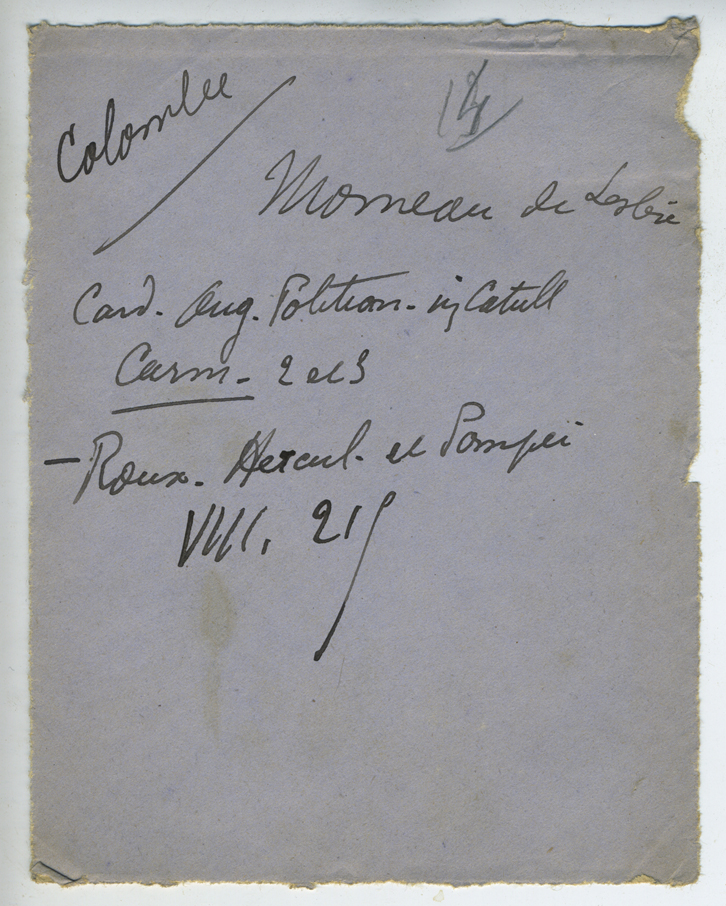 Colombe
14
Moineau de Lesbie
Card. Ang. Politian. in Catull
Carm. 2 et 3
— Roux. Hercul. et Pompéi
VIII. 215